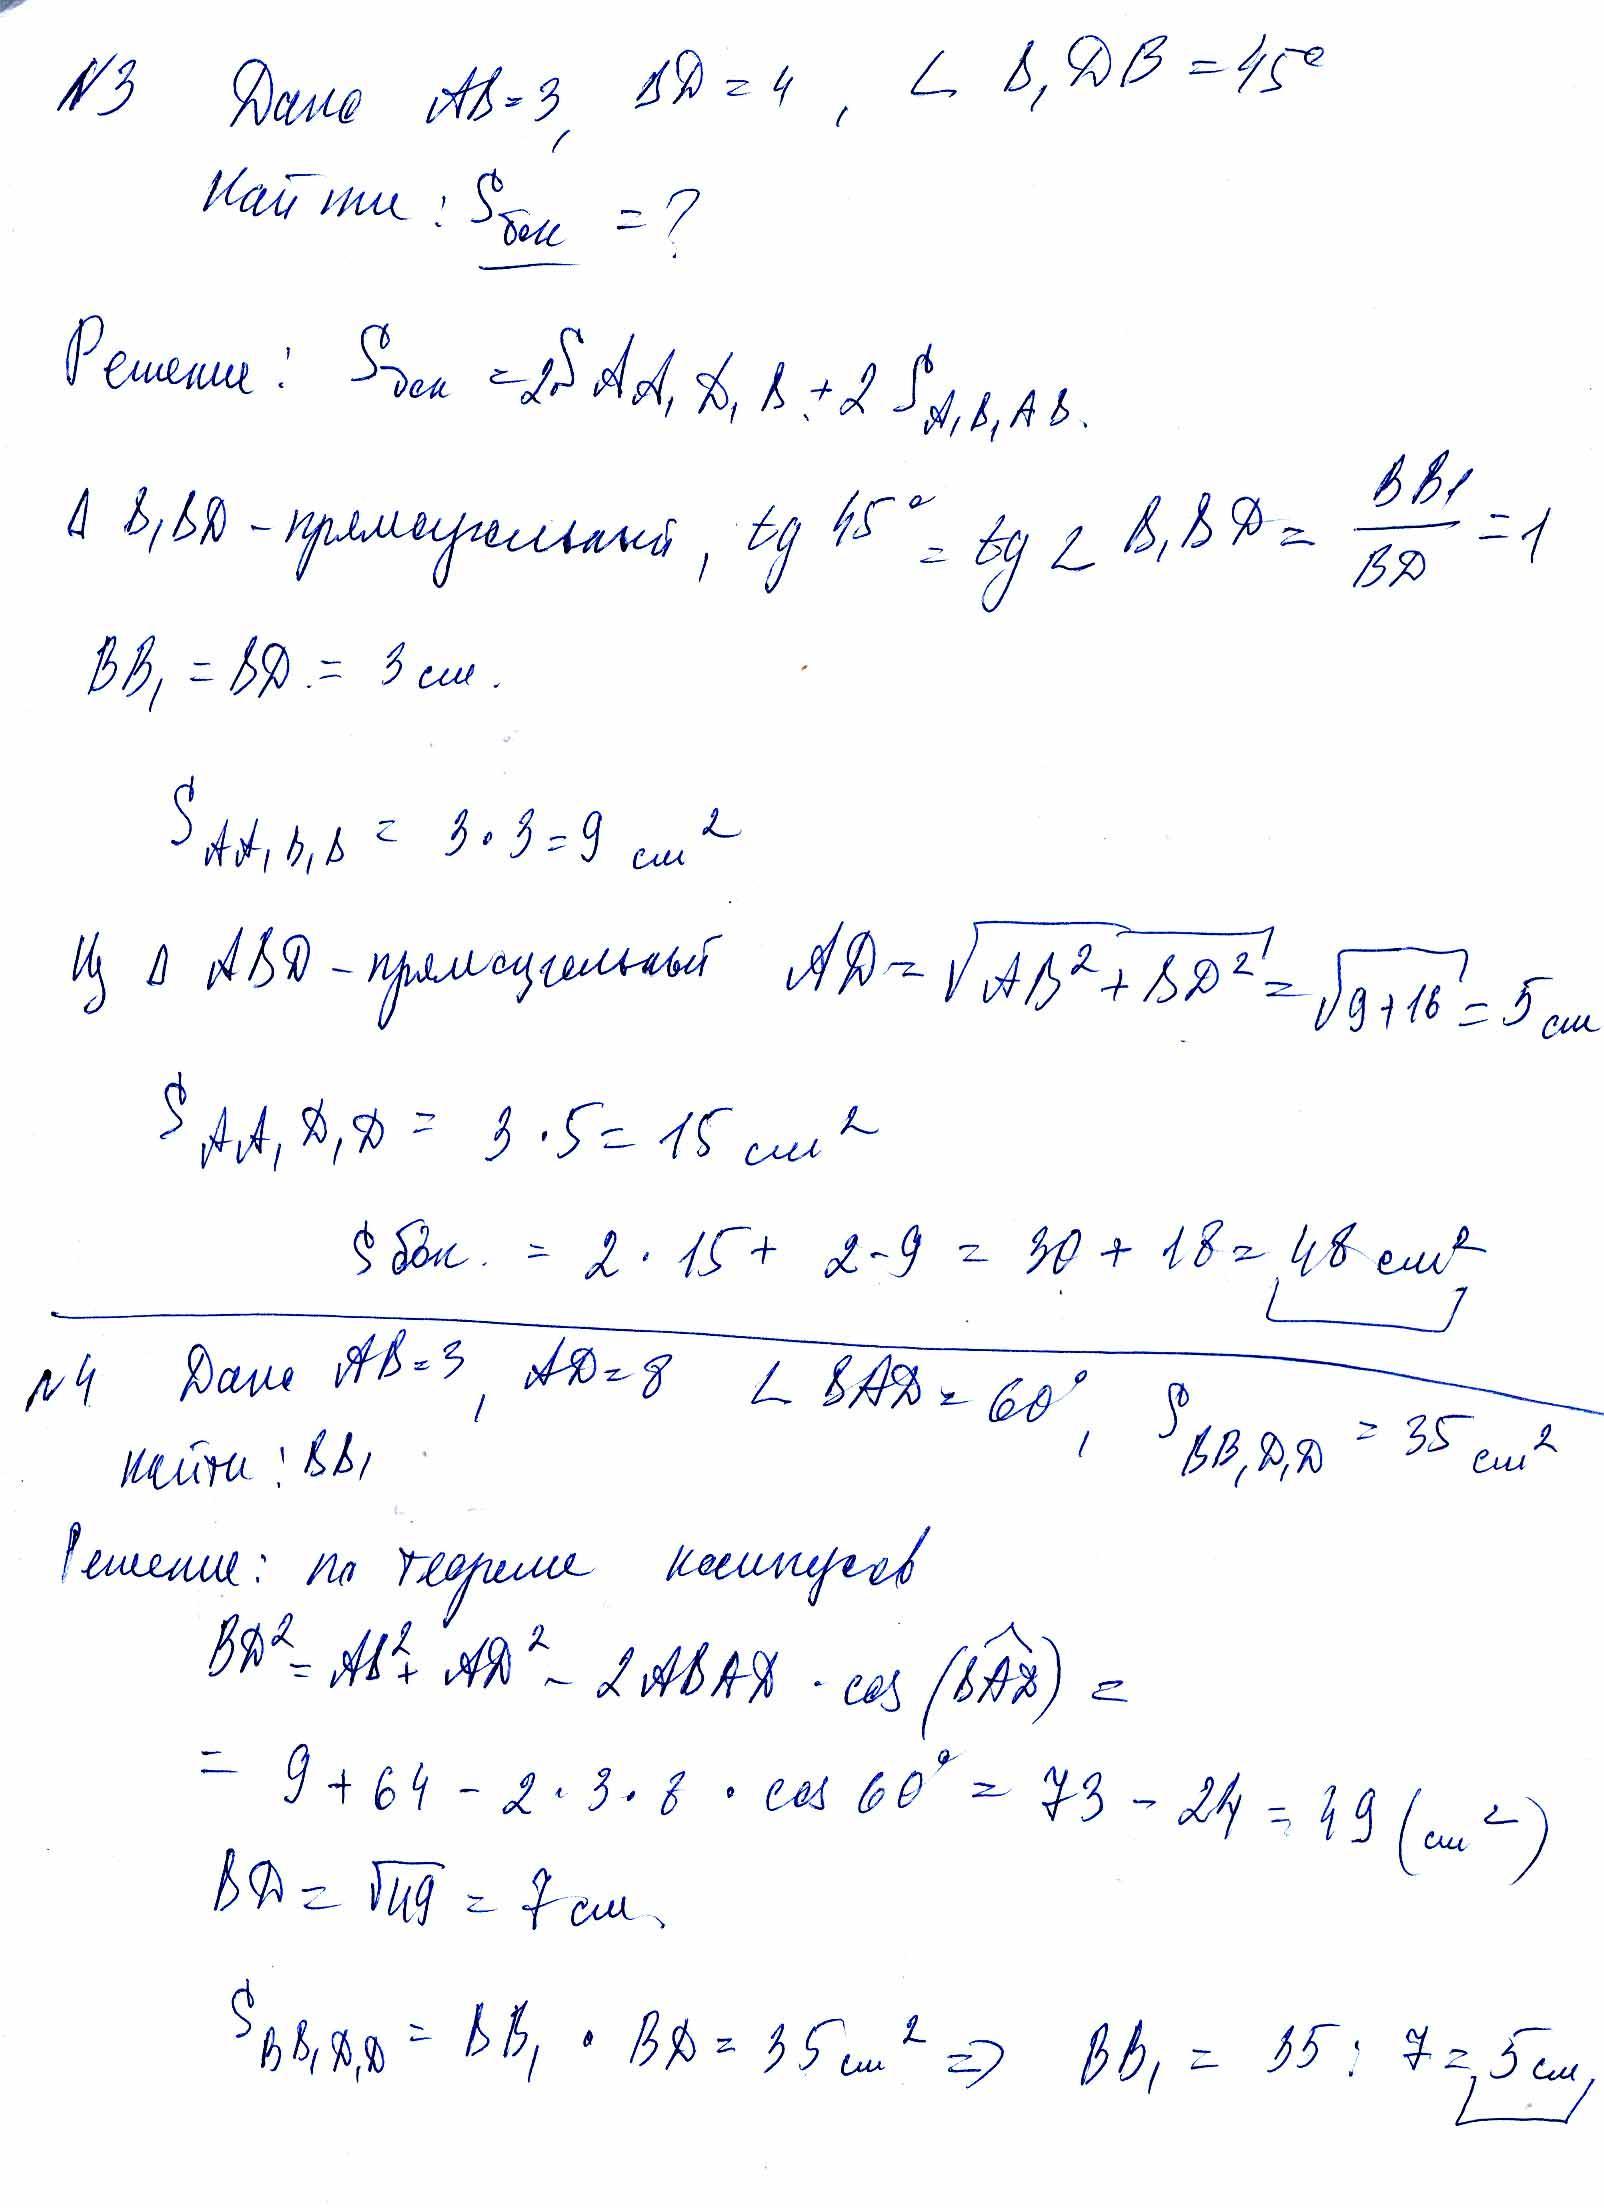 N3 Дано AB=3, BD=4, ∠ B₁DB=45°
Найти: Sбок = ?
Решение: Sбок = 2S AA₁D₁B + 2 S A₁B₁AB.
Δ B₁BD - прямоугольный, tg 45° = tg ∠ B₁BD = BB1/BD = 1
BB₁ = BD = 3 см.
S AA₁B₁B = 3·3=9 см²
Из Δ ABD - прямоугольный AD = √AB²+BD² = √9+16 = 5 см
S AA₁D₁D = 3·5=15 см²
S бок. = 2·15 + 2·9 = 30 + 18 = 48 см²
N4 Дано AB=3, AD=8 ∠ BAD = 60°, S BB₁D₁D = 35 см²
Найти: BB₁
Решение: по теореме косинусов
BD² = AB² + AD² - 2ABAD · cos (BAD) =
= 9 + 64 - 2·3·8 · cos 60° = 73 - 24 = 49 (см²)
BD = √49 = 7 см.
S BB₁D₁D = BB₁ · BD = 35 см² => BB₁ = 35 : 7 = 5 см